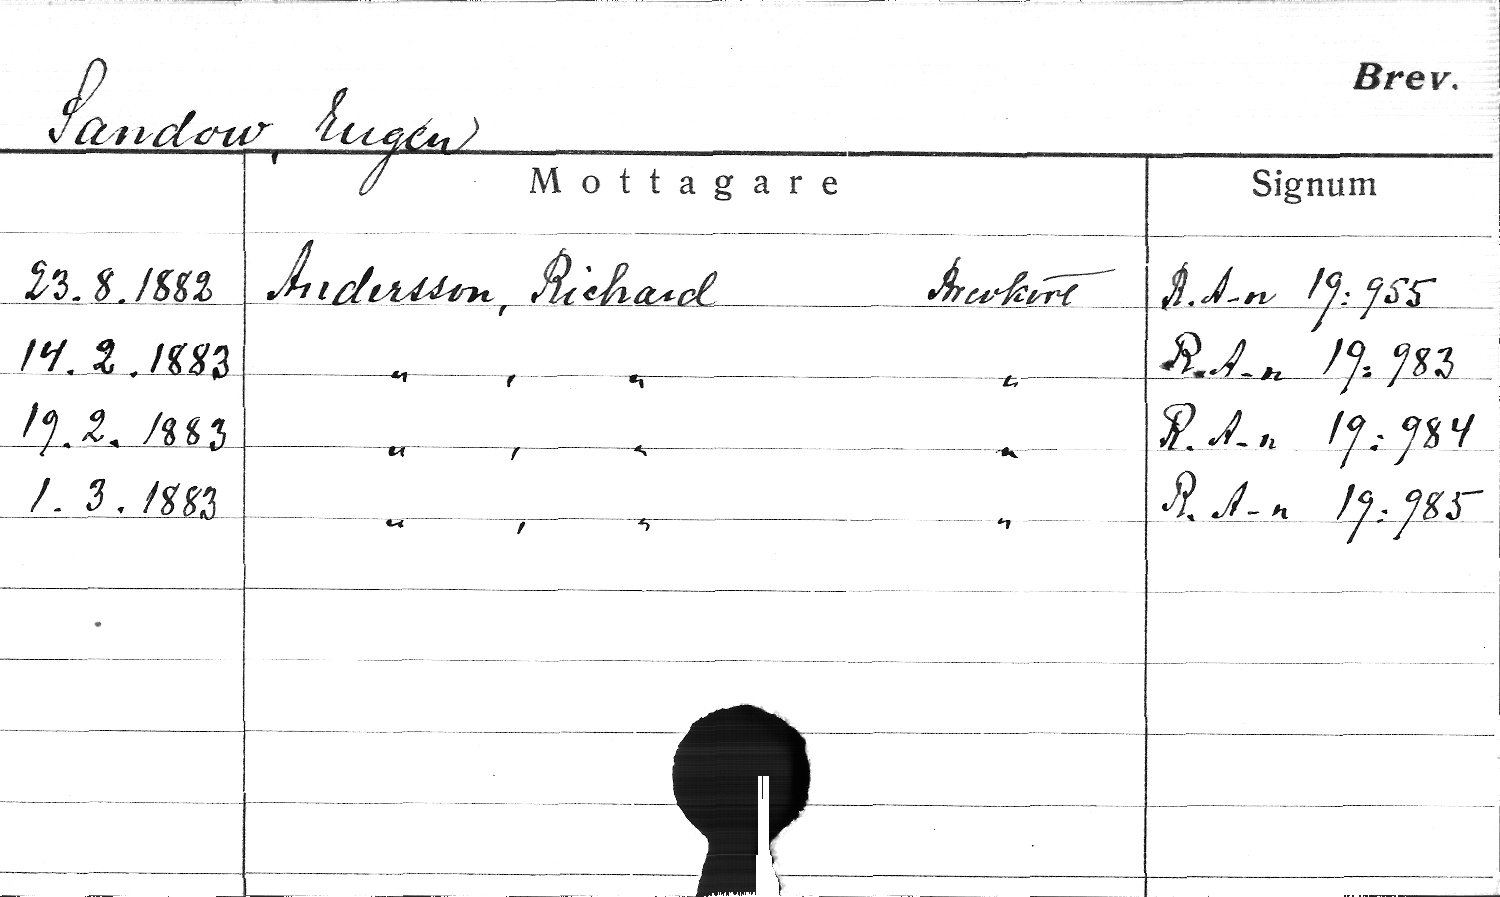 Brev.
Sandow, Eugen
Mottagare Signum
23.8.1882 Andersson, Richard Brevkort R. A-n 19:955
14.2.1883 " , " " R. A-n 19:983
19.2.1883 " , " " R. A-n 19:984
1.3.1883 " , " " R. A-n 19:985